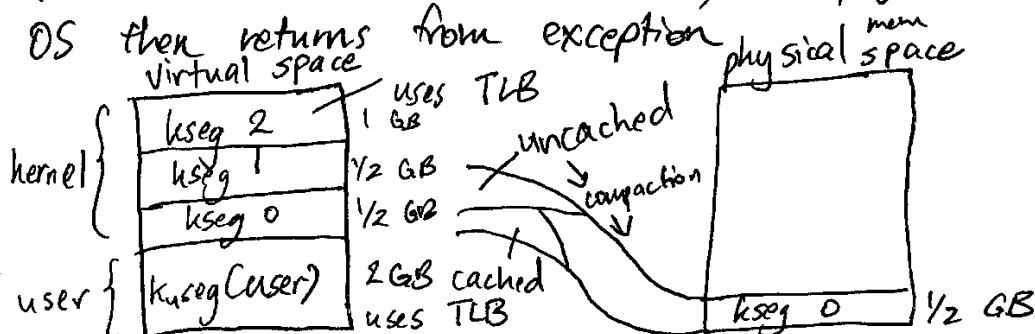 OS then returns from exception
virtual space
physical mem space
kernel
kseg 2
uses TLB
1 GB
kseg 1
1/2 GB
uncached
compaction
kseg 0
1/2 GB
user
kuseg (user)
2 GB cached
uses TLB
kseg 0
1/2 GB